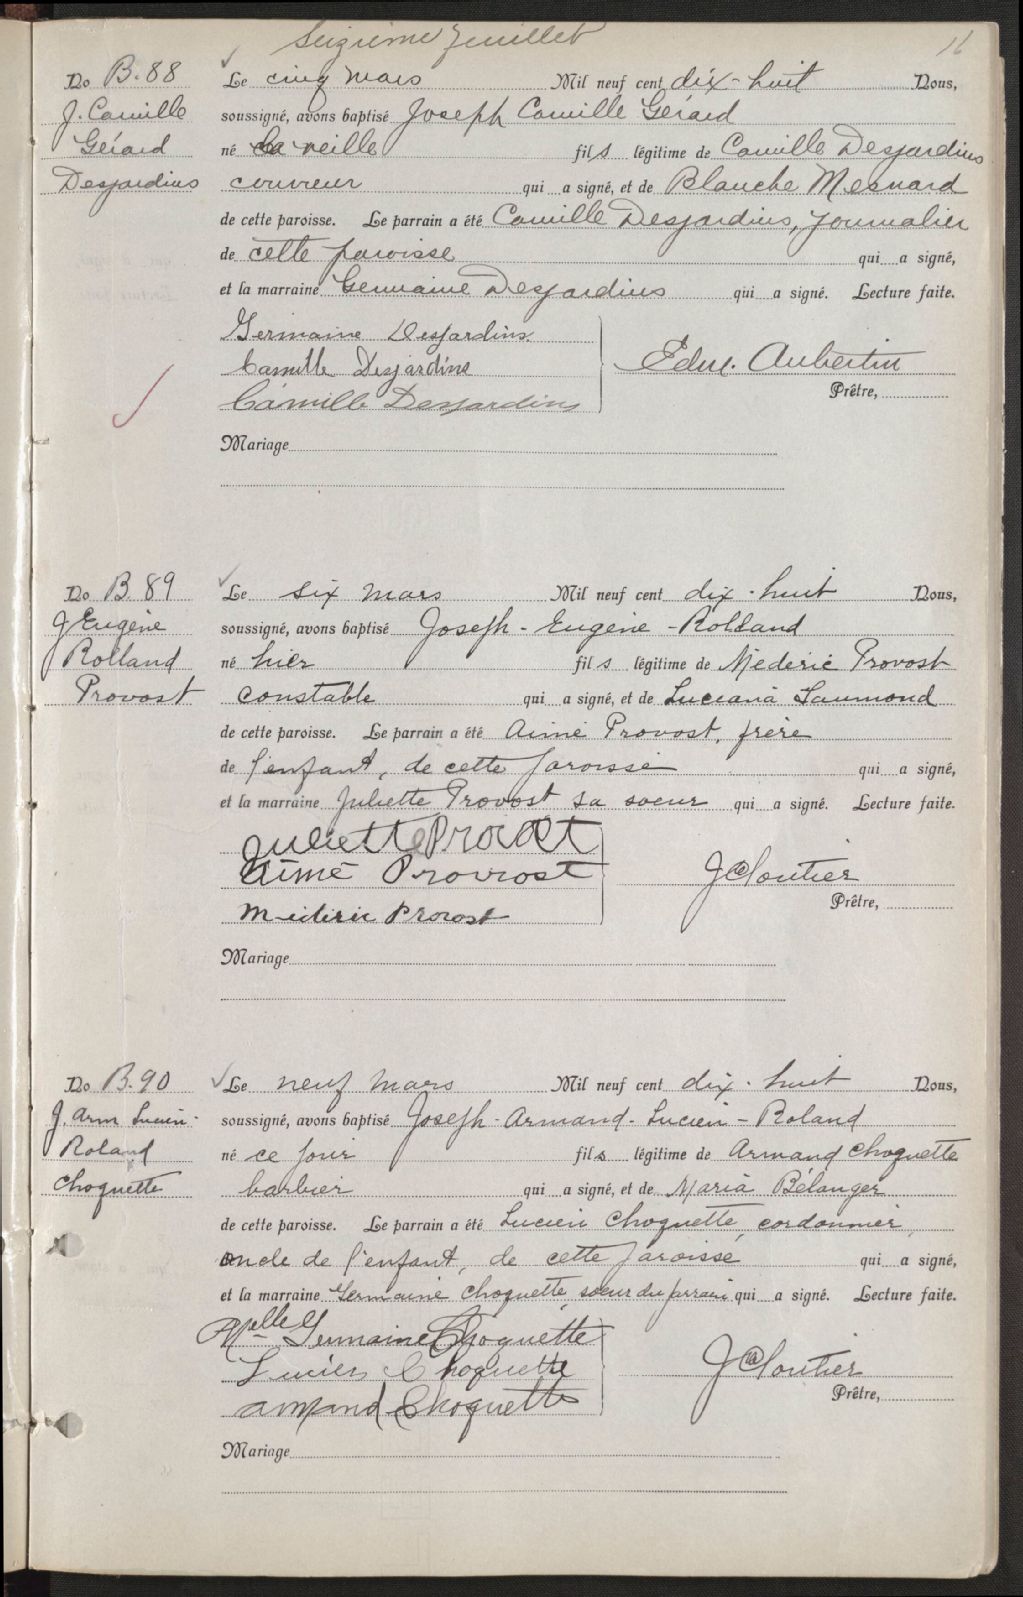 Seizième feuillet 16
No B. 88 Le cinq mars Mil neuf cent dix-huit Nous,
J. Camille soussigné, avons baptisé Joseph Camille Gérard
Gérard né la veille fils légitime de Camille Desjardins
Desjardins couvreur qui a signé, et de Blanche Mesnard
de cette paroisse. Le parrain a été Camille Desjardins, journalier
de cette paroisse qui a signé,
et la marraine Germaine Desjardins qui a signé. Lecture faite.
Germaine Desjardins
Camille Desjardins Edm. Aubertin
Camille Desjardins Prêtre,
Mariage
No B. 89 Le six mars Mil neuf cent dix-huit Nous,
J Eugène soussigné, avons baptisé Joseph-Eugène-Rolland
Rolland né hier fils légitime de Médéric Provost
Provost constable qui a signé, et de Luciana Laumond
de cette paroisse. Le parrain a été Aimé Provost, frère
de l'enfant, de cette paroisse qui a signé,
et la marraine Juliette Provost sa soeur qui a signé. Lecture faite.
Juliette Provost
Aimé Provost J Cloutier
Médéric Provost Prêtre,
Mariage
No B. 90 Le neuf mars Mil neuf cent dix-huit Nous,
J. Arm Lucien- soussigné, avons baptisé Joseph-Armand-Lucien-Roland
Roland né ce jour fils légitime de Armand Choquette
Choquette barbier qui a signé, et de Maria Bélanger
de cette paroisse. Le parrain a été Lucien Choquette, cordonnier,
oncle de l'enfant, de cette paroisse qui a signé,
et la marraine Germaine Choquette, soeur du parrain qui a signé. Lecture faite.
Melle Germaine Choquette
Lucien Choquette J Cloutier
Armand Choquette Prêtre,
Mariage